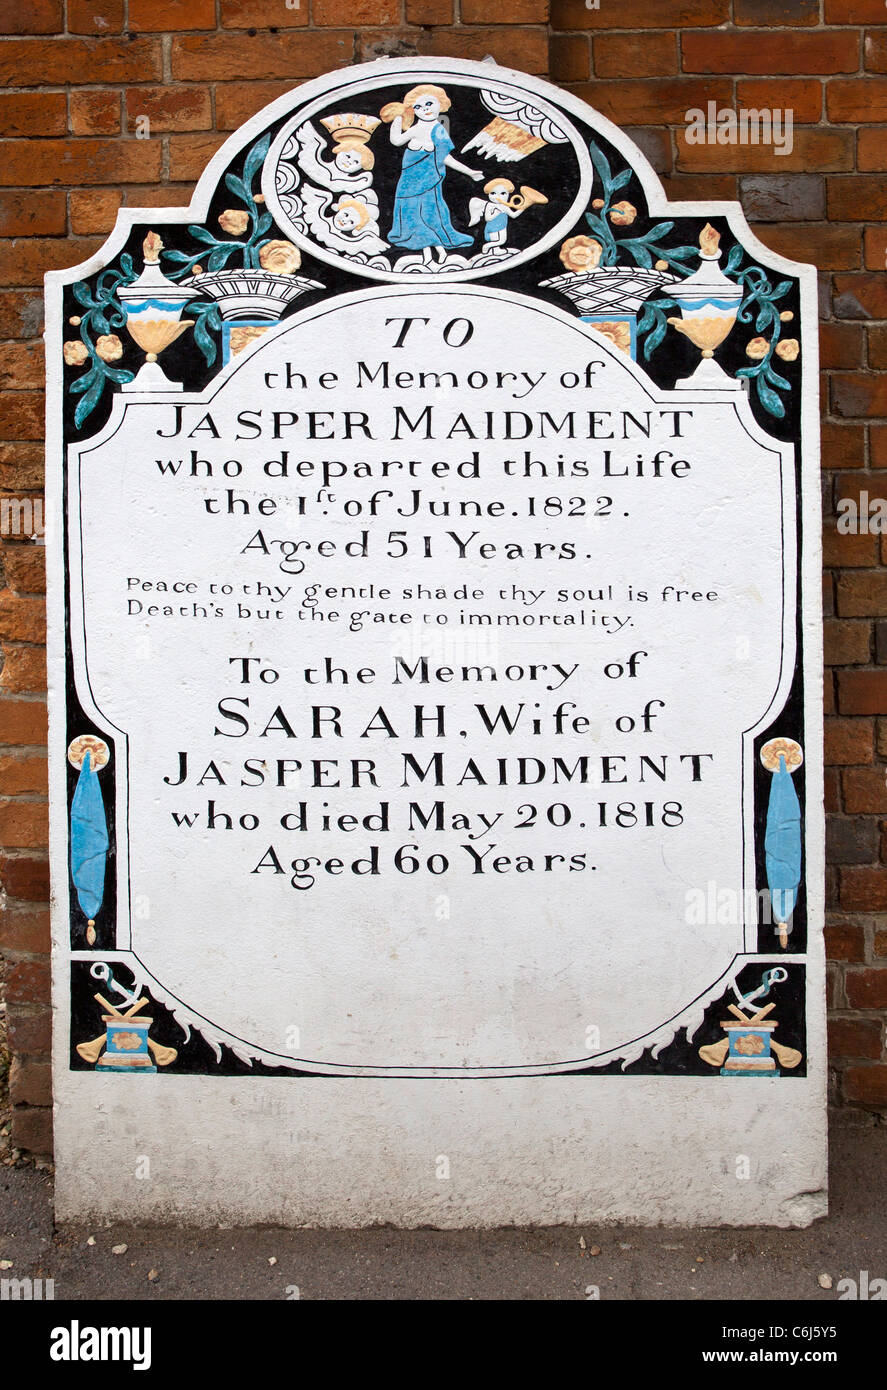 TO
the Memory of
JASPER MAIDMENT
who departed this Life
the 1st. of June. 1822.
Aged 51 Years.
Peace to thy gentle shade thy soul is free
Death's but the gate to immortality.
To the Memory of
SARAH, Wife of
JASPER MAIDMENT
who died May 20. 1818
Aged 60 Years.
alamy
alamy
Image ID: C6J5Y5
www.alamy.com